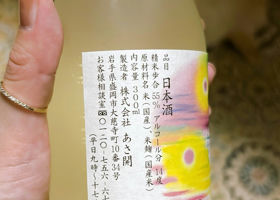 品目 日本酒
精米歩合 55% アルコール分 14度
原材料名 米(国産)、米麹(国産米)
内容量 300ml
製造者 株式会社 あさ開
岩手県盛岡市大慈寺町10番34号
お客様相談室 ☎〇一二〇-七五六-六七
(平日九時〜十七